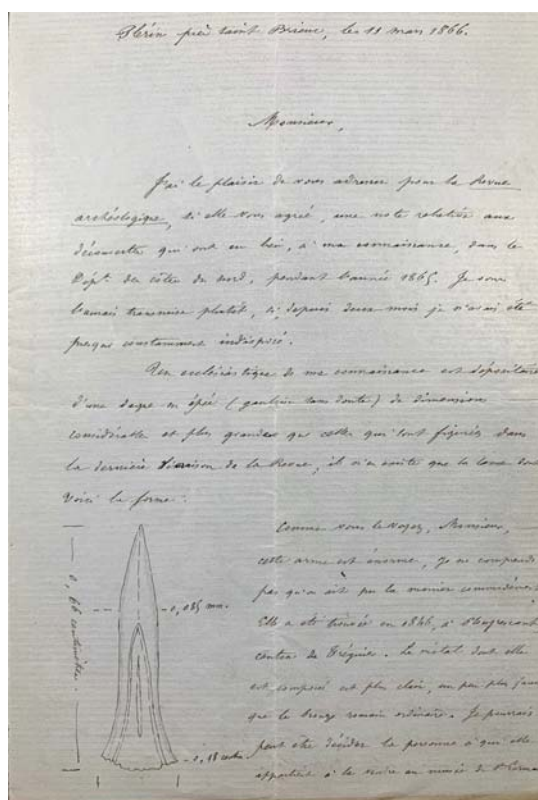 Plérin près Saint Brieuc, le 13 mars 1866.
Monsieur,
J'ai le plaisir de vous adresser pour la Revue
archéologique, si elle vous agrée, une note relative aux
découvertes qui ont eu lieu, à ma connaissance, dans le
Dépt. des côtes du nord, pendant l'année 1865. Je vous
l'aurais transmise plutôt, si, depuis deux mois je n'avais été
presque constamment indisposé.
Un ecclésiastique de ma connaissance est dépositaire
d'une dague ou épée (gauloise sans doute) de dimensions
considérables et plus grandes que celles qui sont figurées dans
la dernière livraison de la Revue, il n'en existe que la lame dont
voici la forme :
Comme vous le voyez, Monsieur,
cette arme est énorme, je ne comprends
pas qu'on ait pu la manier commodément
Elle a été trouvée en 1846, à Plougrescant
canton de Tréguier. Le métal dont elle
est composé est plus clair, un peu plus jaune
que le bronze romain ordinaire. Je pourrais
peut être décider la personne à qui elle
appartient à la vendre au musée de St Germain
0,66 centimètres.
0,085 mm.
0,18 cent